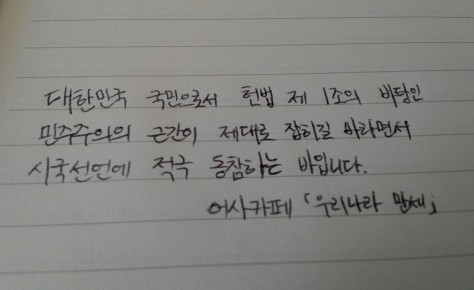 대한민국 국민으로서 헌법 제 1조의 바탕인
민주주의의 근간이 제대로 잡히길 바라면서
시국선언에 적극 동참하는 바입니다.
여사카페 「우리나라 만세」